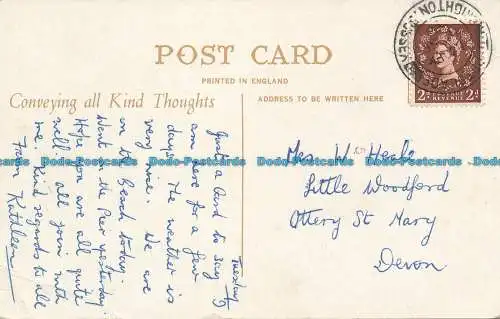 POST CARD
PRINTED IN ENGLAND
Conveying all Kind Thoughts
ADDRESS TO BE WRITTEN HERE
Tuesday
Just a card to say
am here for a few
days. The weather is
very nice. We are
on the beach today.
Went on the Pier yesterday.
Hope you are all quite
well. all join with
me. Kind regards to all
From Kathleen
Mrs W
Little Woodford
Ottery St Mary
Devon
BRIGHTON SUSSEX
REVENUE
2d 2d
Dado-Postcards Dado-Postcards Dado-Postcards Dado-Postcards